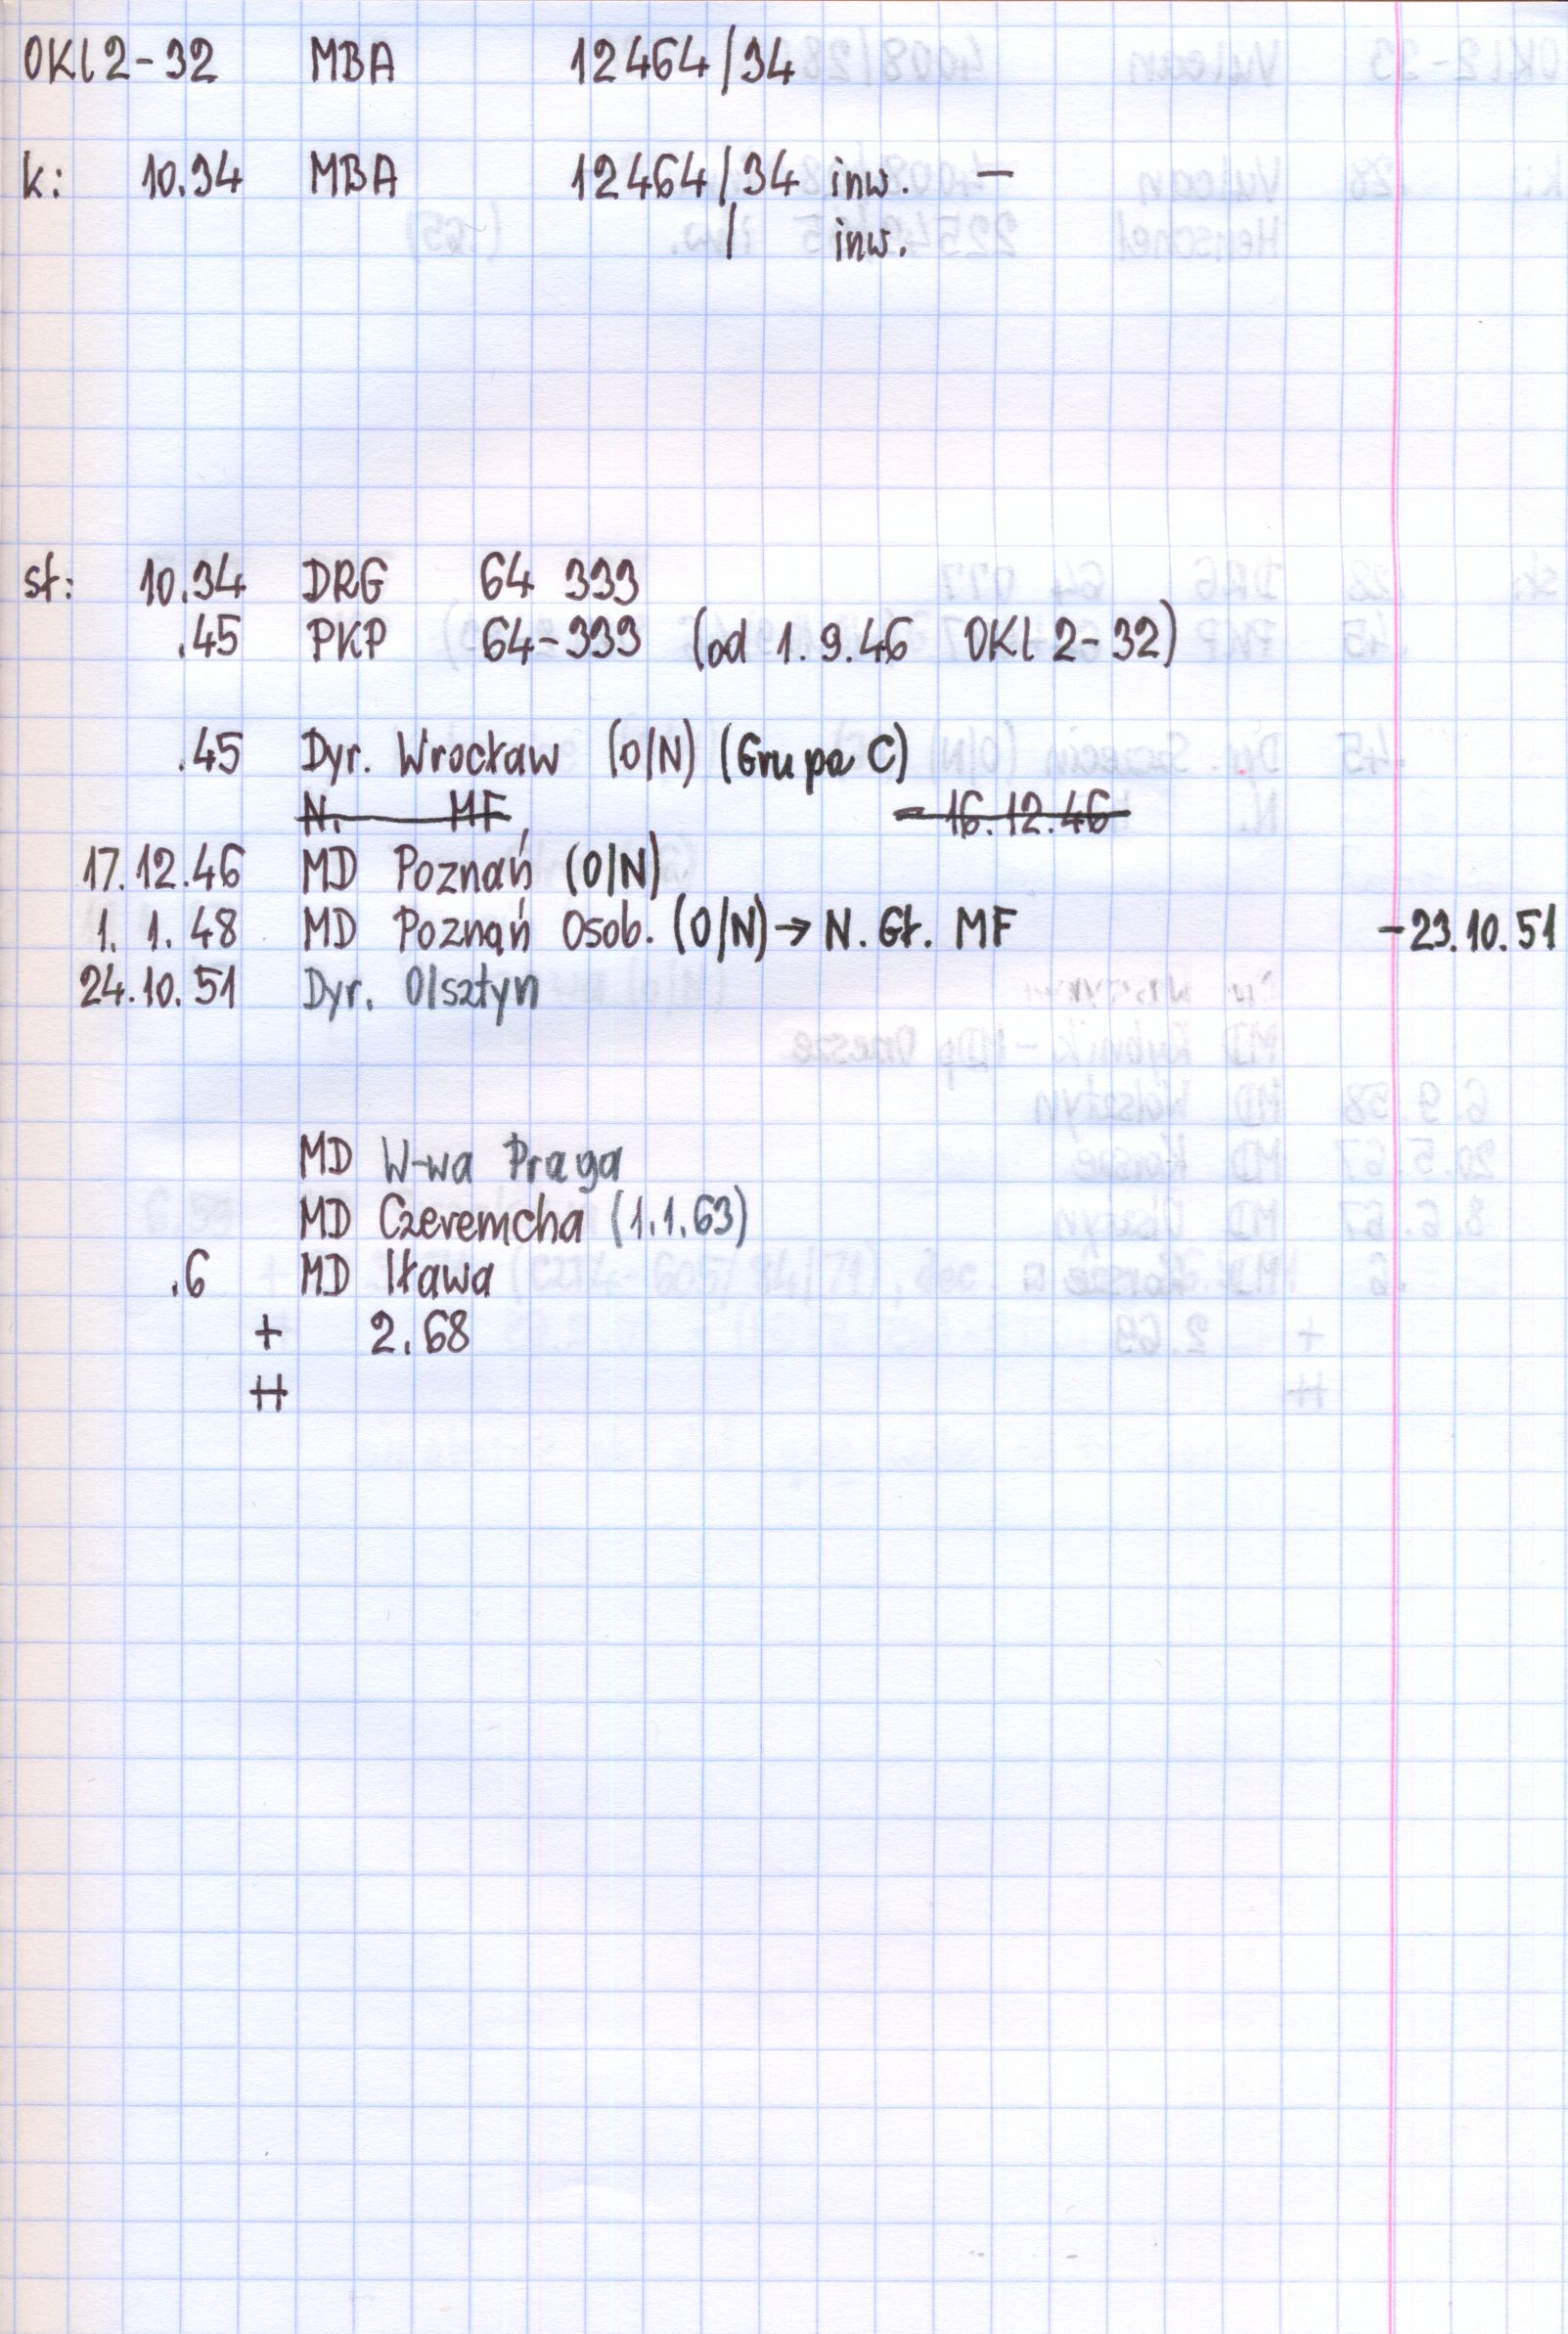 OKl2-32 MBA 12464/34
k: 10.34 MBA 12464/34 inw. -
/ inw.
st: 10.34 DRG 64 333
.45 PKP 64-333 (od 1.9.46 OKl2-32)
.45 Dyr. Wrocław (O/N) (Grupa C)
N. MF - 16.12.46
17.12.46 MD Poznań (O/N)
1. 1. 48 MD Poznań Osob. (O/N) → N. Gł. MF - 23.10.51
24.10.51 Dyr. Olsztyn
MD W-wa Praga
MD Czeremcha (1.1.63)
.6 MD Iława
+ 2.68
++